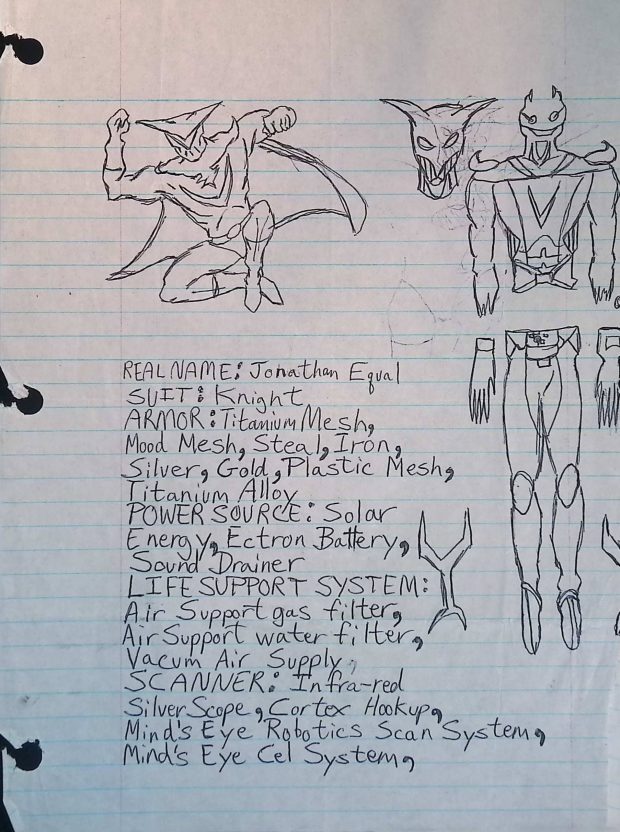 REAL NAME: Jonathan Equal
SUIT: Knight
ARMOR: Titanium Mesh,
Mood Mesh, Steal, Iron,
Silver, Gold, Plastic Mesh,
Titanium Alloy
POWER SOURCE: Solar
Energy, Ectron Battery,
Sound Drainer
LIFE SUPPORT SYSTEM:
Air Support gas filter,
Air Support water filter,
Vacum Air Supply,
SCANNER: Infra-red
Silver Scope, Cortex Hookup,
Mind's Eye Robotics Scan System,
Mind's Eye Cel System,